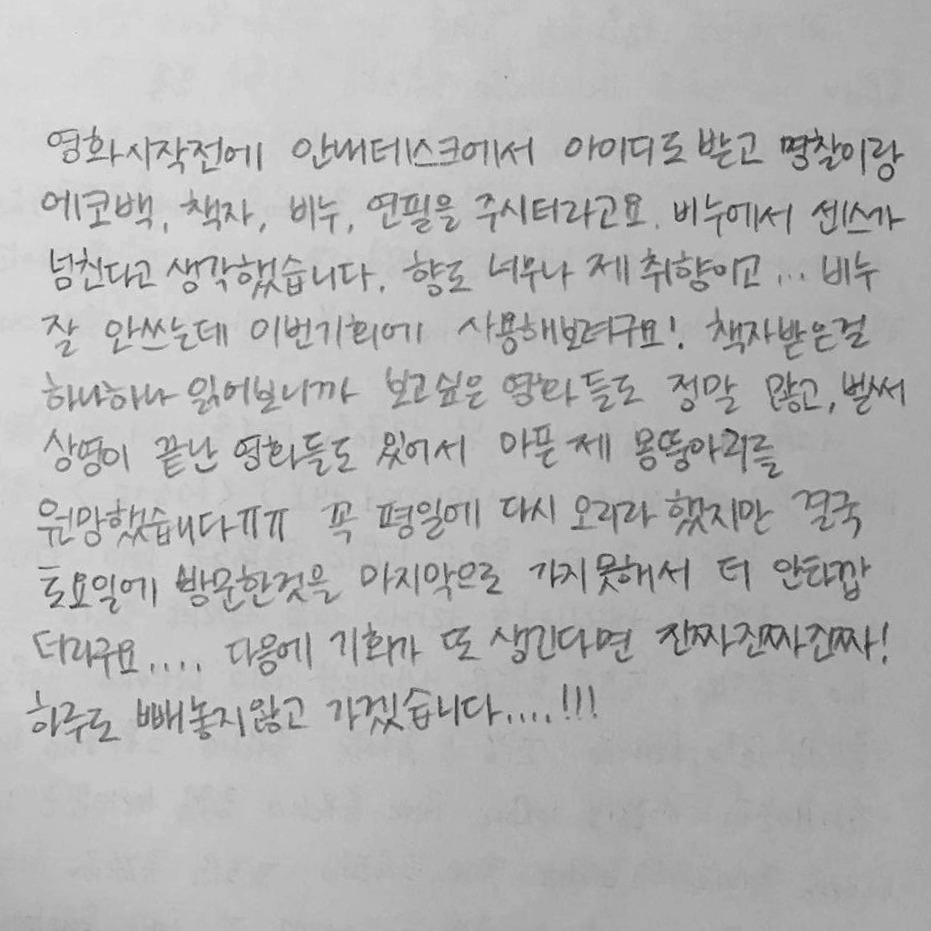 영화시작전에 안내데스크에서 아이디도 받고 명찰이랑
에코백, 책자, 비누, 연필을 주시더라고요. 비누에서 센스가
넘친다고 생각했습니다. 향도 너무나 제 취향이고... 비누
잘 안쓰는데 이번기회에 사용해보려구요! 책자받은걸
하나하나 읽어보니까 보고싶은 영화들도 정말 많고, 벌써
상영이 끝난 영화들도 있어서 아픈 제 몸뚱아리를
원망했습니다ㅠㅠ 꼭 평일에 다시 오리라 했지만 결국
토요일에 방문한것을 마지막으로 가지못해서 더 안타깝
더라구요.... 다음에 기회가 또 생긴다면 진짜진짜진짜!
하루도 빼놓지않고 가겠습니다....!!!